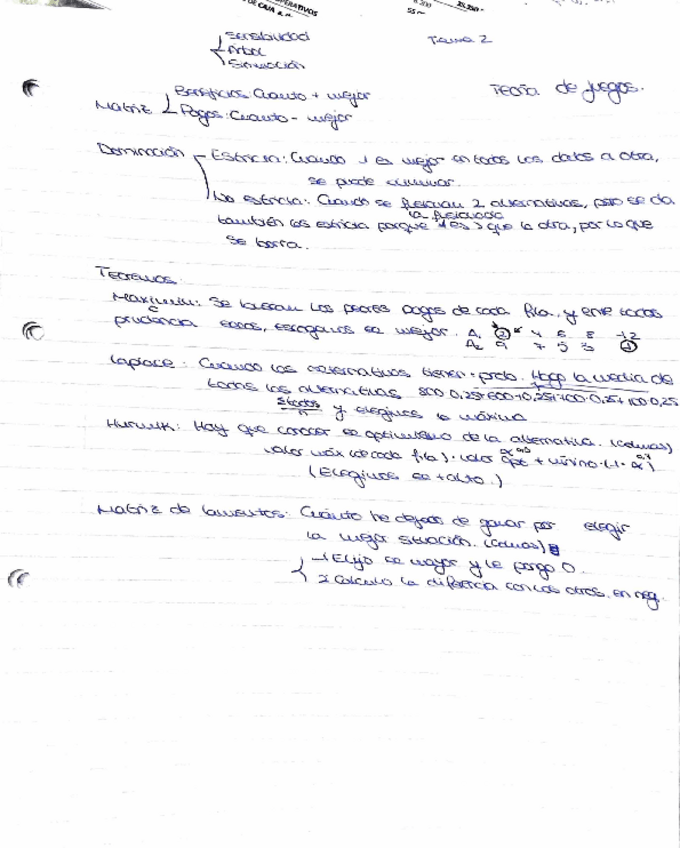 OPERATIVOS
DE CAJA
Sensibilidad
Árbol
Simulación
Tema 2
Teoría de juegos.
Matriz
Beneficios: Cuanto + mejor
Pagos: Cuanto - mejor
Dominación
Estricta: Cuando 1 es mejor en todos los datos a otra,
se puede eliminar.
No estricta: Cuando se fusionan 2 alternativas, pero se da
la fusionada
también la estricta porque 1 es > que la otra, por lo que
se borra.
Teoremas.
Maximin: Se buscan los peores pagos de cada fila, y entre todos
prudencia esos, escogemos el mejor. A1 2 * 4 5 8 -12
A2 9 7 5 3 1
Laplace: Cuando las alternativas tienen = prob. Hago la media de
todas las alternativas 800·0,25+600·0,25+400·0,25+100·0,25
Σtodos
n
y elegimos la máxima
Hurwik: Hay que conocer el optimismo de la alternativa. (colmas)
valor máx (de cada fila) · valor opt + mínimo·(1-α)
(Elegimos el + alto.)
Matriz de lamentos: Cuánto he dejado de ganar por elegir
la mejor situación. (colmas)
1 Elijo el mayor y le pongo 0.
2 Calculo la diferencia con los otros, en neg.